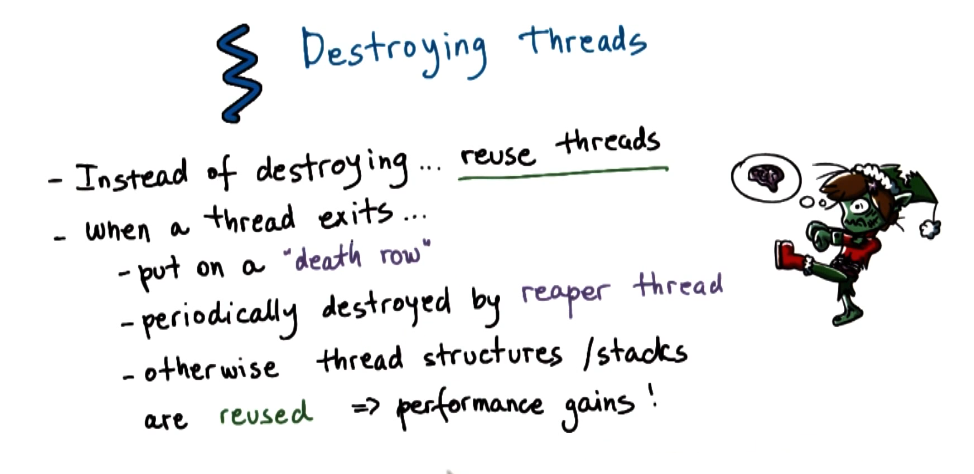 Destroying threads
- Instead of destroying... reuse threads
- when a thread exits...
- put on a "death row"
- periodically destroyed by reaper thread
- otherwise thread structures /stacks
are reused => performance gains!